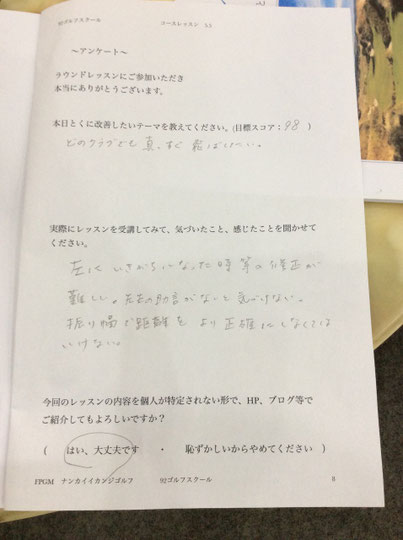 92ゴルフスクール コースレッスン 5.5
～アンケート～
ラウンドレッスンにご参加いただき
本当にありがとうございます。
本日とくに改善したいテーマを教えてください。(目標スコア：98 )
どのクラブでも真っすぐ飛ばしたい。
実際にレッスンを受講してみて、気づいたこと、感じたことを聞かせて
ください。
左にいきがちになった時等の修正が
難しい。の助言がないと気づけない。
振り幅で距離をより正確にしなくては
いけない。
今回のレッスンの内容を個人が特定されない形で、HP、ブログ等で
ご紹介してもよろしいですか？
( はい、大丈夫です ・ 恥ずかしいからやめてください )
FPGM ナンカイイカンジゴルフ 92ゴルフスクール 8